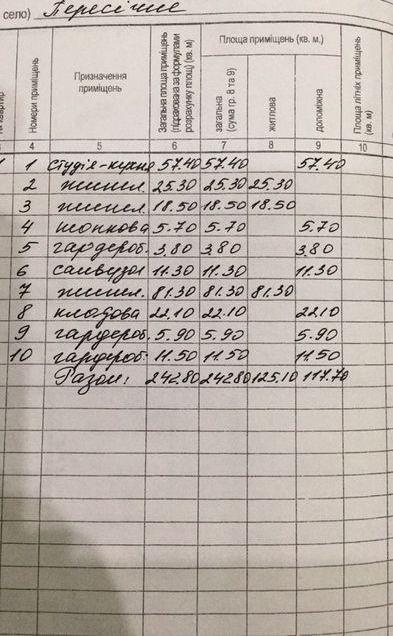 село) Пересічне
Номери приміщень
Призначення приміщень
Загальна площа приміщень
Площа приміщень (кв. м.)
загальна (сума гр. 8 та 9)
житлова
допоміжна
Площа літніх приміщень (кв. м)
3 4 5 6 7 8 9 10
1 1 Студія-кухня 57.40 57.40 57.40
2 житл. 25.30 25.30 25.30
3 житл. 18.50 18.50 18.50
4 5.70 5.70 5.70
5 гардероб. 3.80 3.80 3.80
6 санвузол 11.30 11.30 11.30
7 житл. 81.30 81.30 81.30
8 кладова 22.10 22.10 22.10
9 гардероб. 5.90 5.90 5.90
10 гардероб. 11.50 11.50 11.50
Разом: 242.80 242.80 125.10 117.70